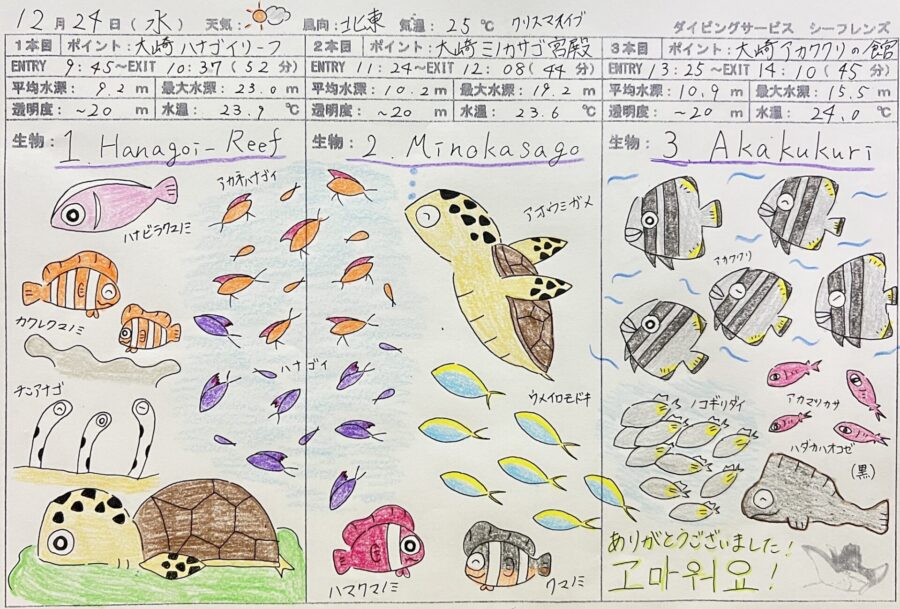 12月24日(水) 天気: 風向: 北東 気温: 25℃ クリスマスイブ ダイビングサービス シーフレンズ
1本目 ポイント: 大崎ハナゴイリーフ
ENTRY 9:45~EXIT 10:37(52分)
平均水深: 9.2m 最大水深: 23.0m
透明度: ~20m 水温: 23.9℃
生物: 1. Hanagoi-Reef
ハナビラクマノミ
アカネハナゴイ
カクレクマノミ
ハナゴイ
チンアナゴ
2本目 ポイント: 大崎ミノカサゴ宮殿
ENTRY 11:24~EXIT 12:08(44分)
平均水深: 10.2m 最大水深: 19.2m
透明度: ~20m 水温: 23.6℃
生物: 2. Minokasago
アオウミガメ
ウメイロモドキ
ハマクマノミ
クマノミ
3本目 ポイント: 大崎アカククリの館
ENTRY 13:25~EXIT 14:10(45分)
平均水深: 10.9m 最大水深: 15.5m
透明度: ~20m 水温: 24.0℃
生物: 3. Akakukuri
アカククリ
アカマツカサ
ノコギリダイ
ハダカハオコゼ
(黒)
ありがとうございました!
고마워요!